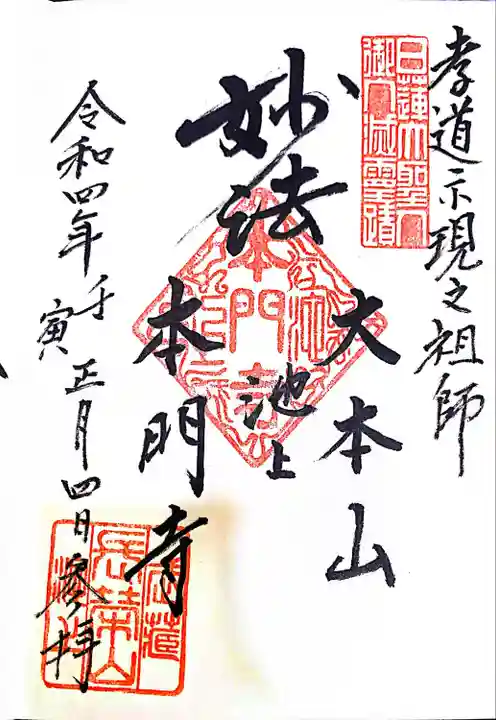 孝道示現之祖師
日蓮大聖人
御入滅霊蹟
妙法
大本山
池上
本門寺
長栄山
令和四年壬寅正月四日參拝